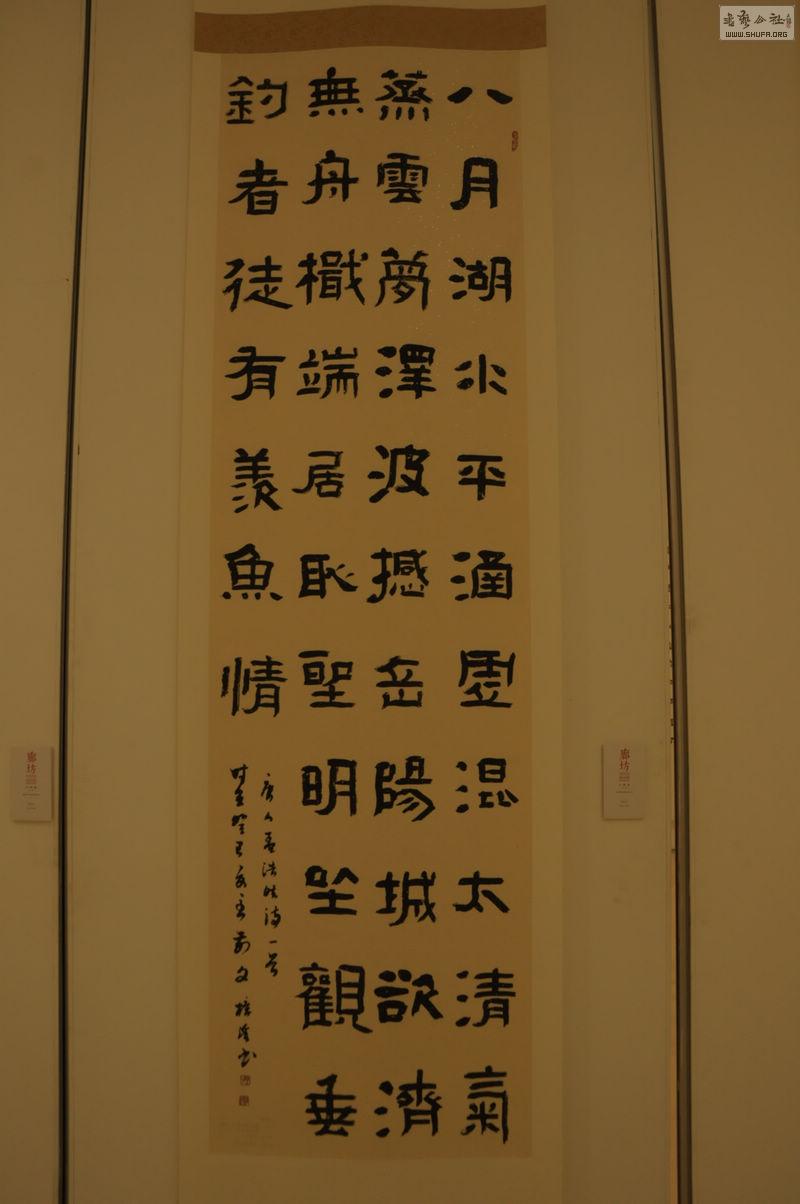 八月湖水平涵虛混太清氣
蒸雲夢澤波撼岳陽城欲濟
無舟檝端居恥聖明坐觀垂
釣者徒有羨魚情
唐人孟浩然詩一首
時在癸巳
書
廊坊
廊坊
WWW.SHUFA.ORG